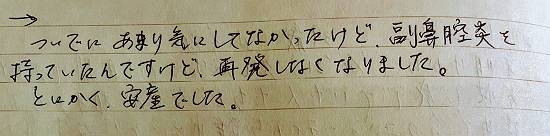 →
ついでに あまり気にしてなかったけど、副鼻腔炎を
持っていたんですけど、再発しなくなりました。
とにかく、安産でした。